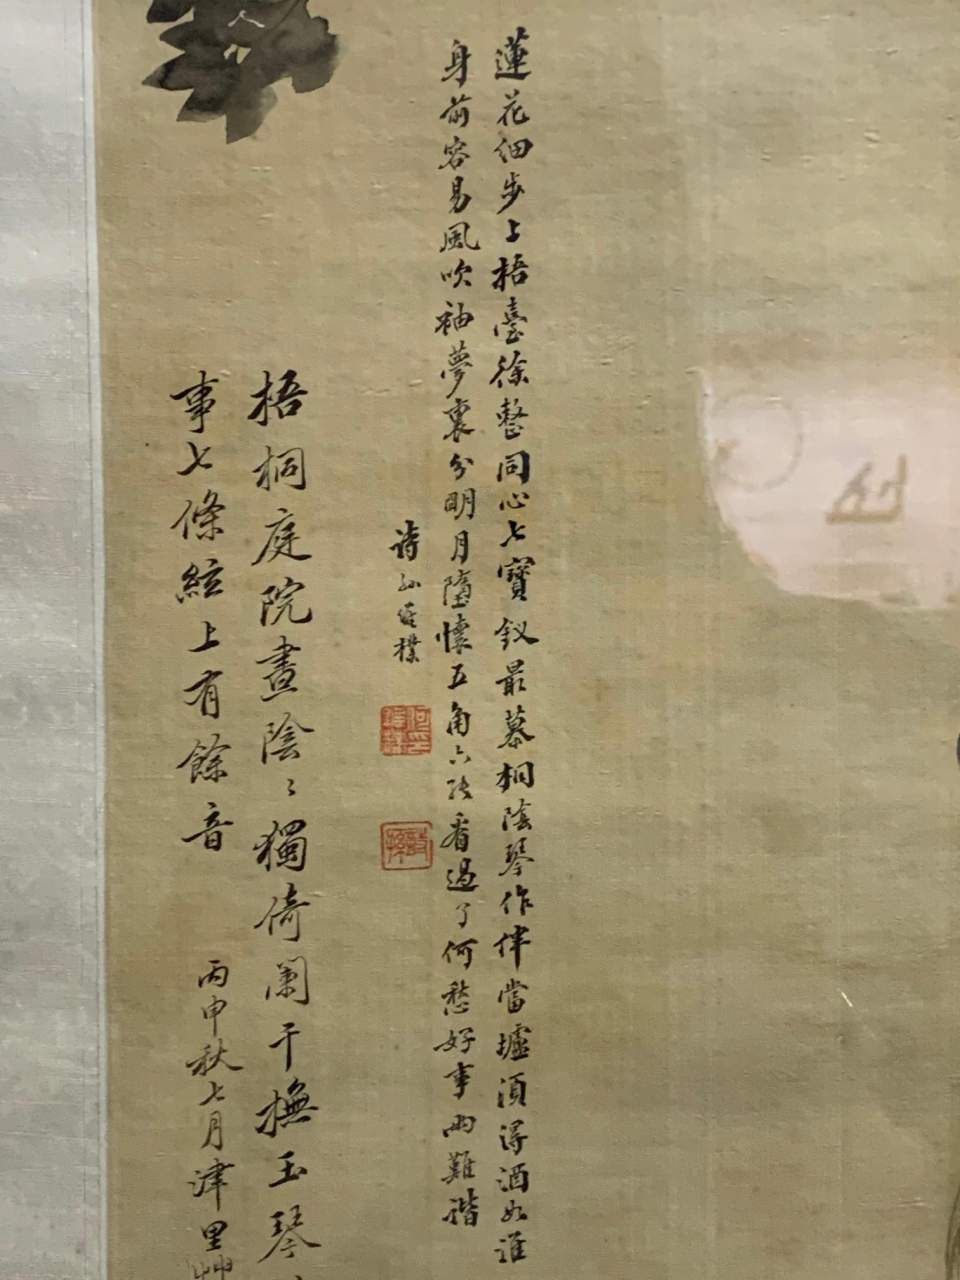 蓮花細步上梧臺徐整同心七寶釵最慕桐陰琴作伴當壚須得酒如淮
身前容易風吹袖夢裏分明月墮懷五角六張看過了何愁好事兩難諧
詩孫
梧桐庭院晝陰〻獨倚闌干撫玉琴
事七條絃上有餘音
丙申秋七月津里